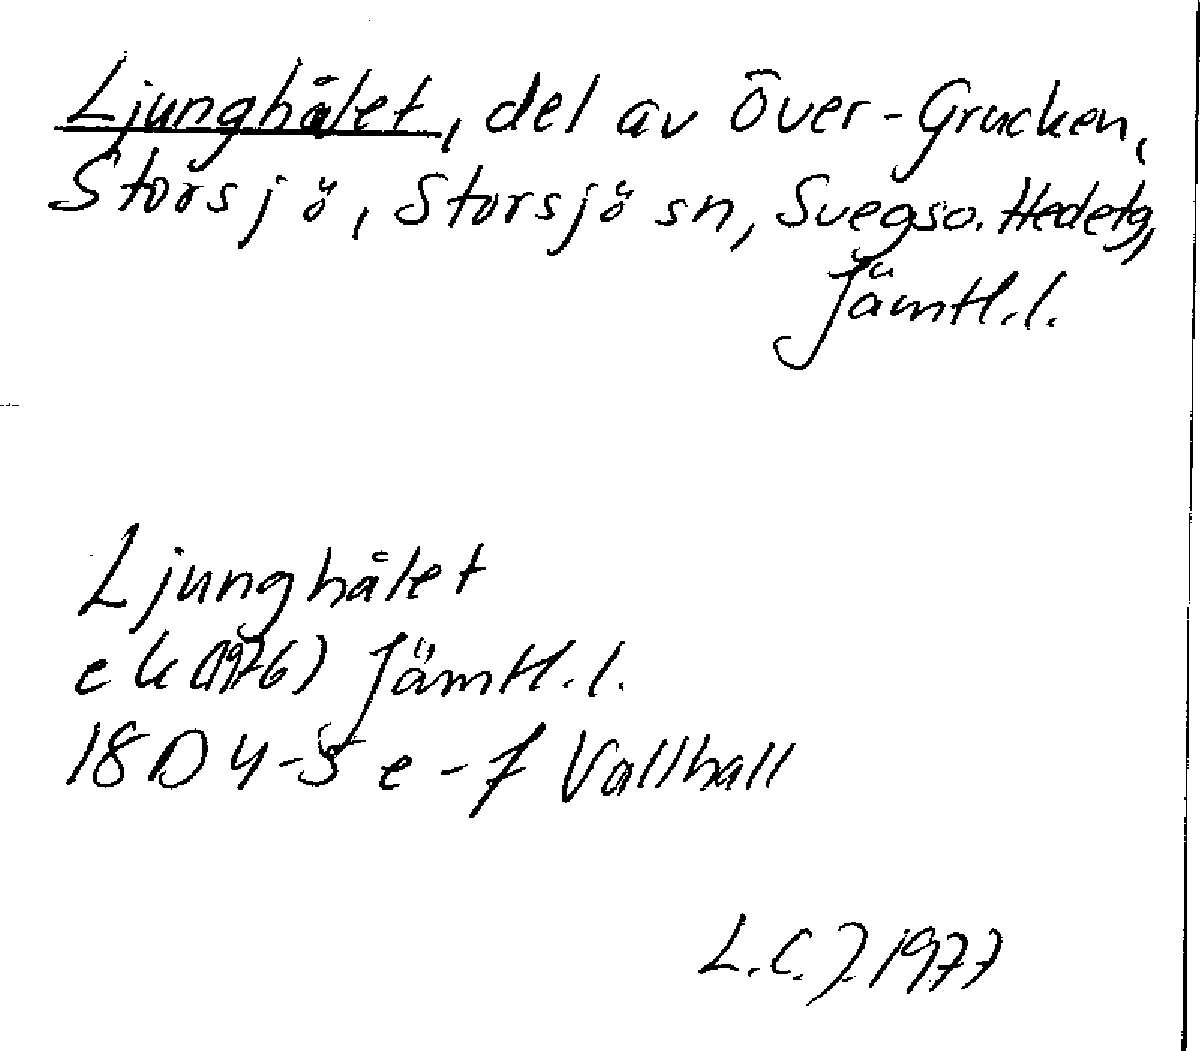 Ljunghålet, del av Över-Grucken,
Storsjö, Storsjö sn, Svegs o. Hedetg,
Jämtl.l.
Ljunghålet
ek (1976) Jämtl.l.
18D 4-5 e-f Vallhall
L.C.J. 1977